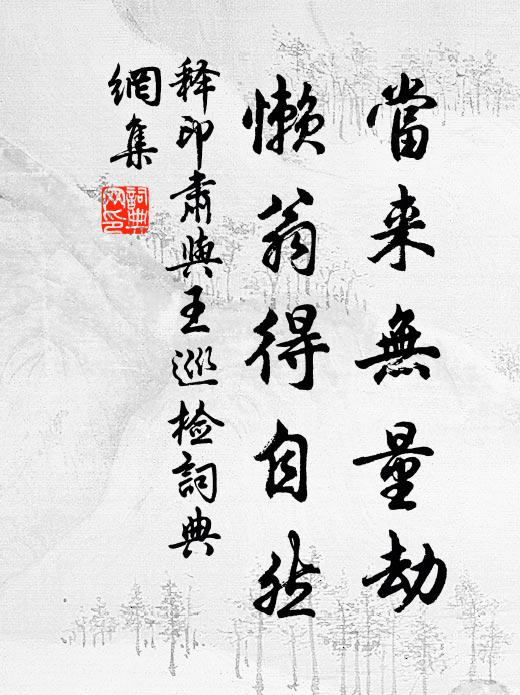 當来無量劫
懶翁得自然
释印肃與王巡检詞典
網集
詞典
网印